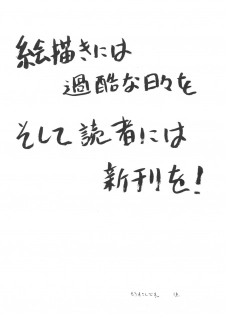 絵描きには
過酷な日々を
そして読者には
新刊を!